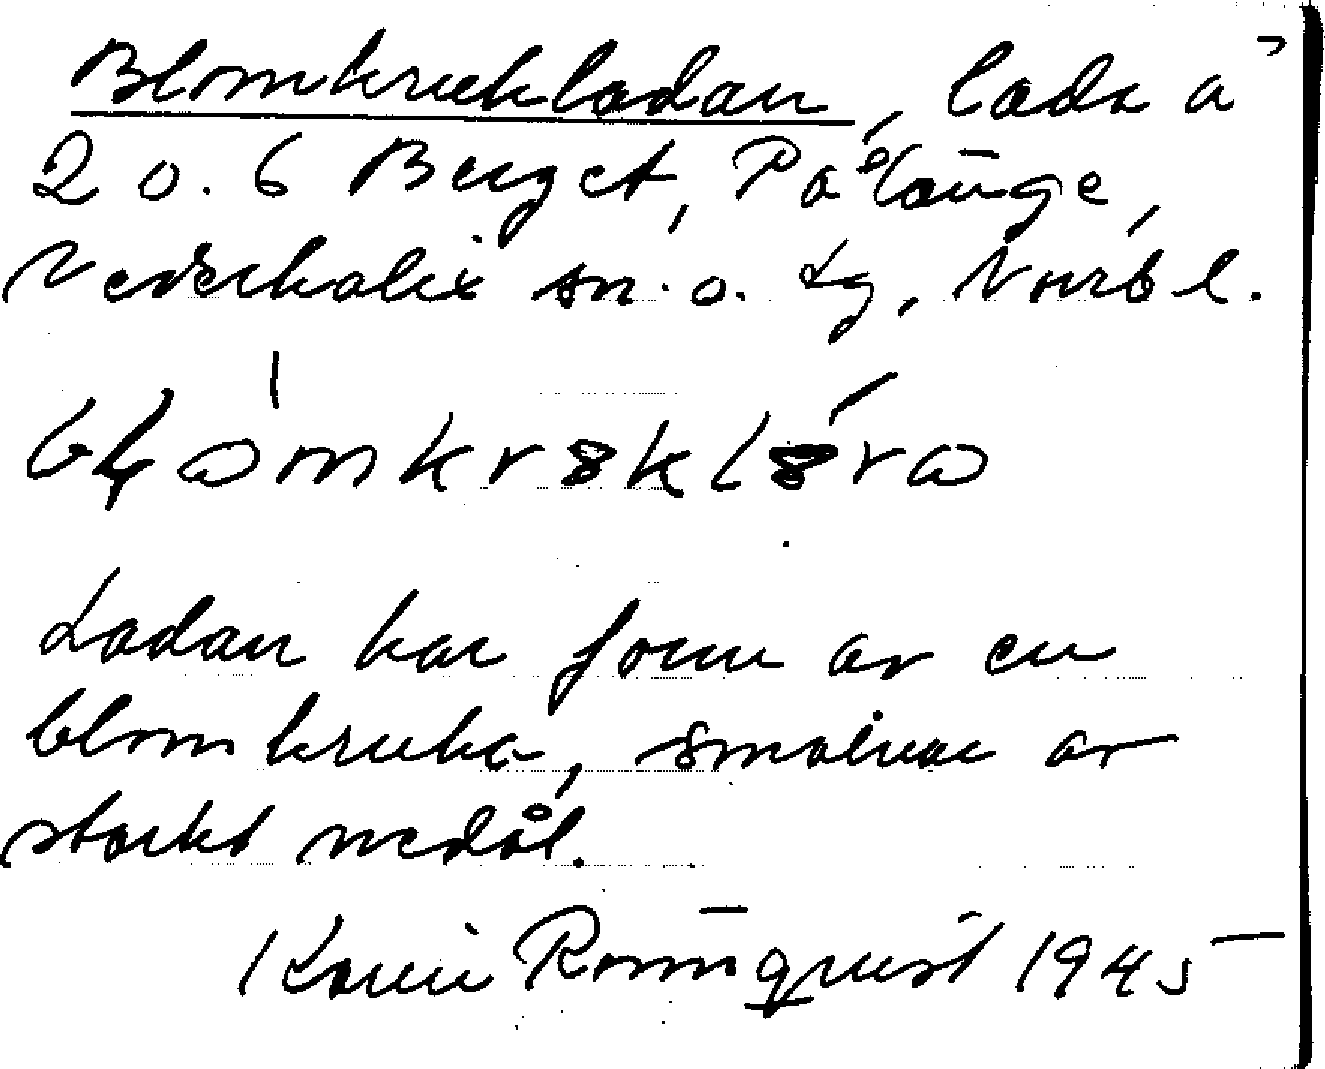 Blomkrukladan, lada å
2 o. 6 Berget, Pålänge,
Nederkalix sn. o. tg, Norrb l.
Ladan har form av en
blomkruka, smalnar av
starkt nedåt.
Karin Rönnquist 1945